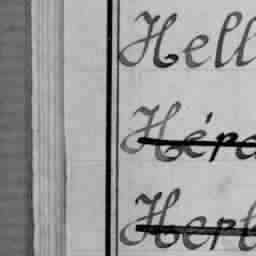 Hell
Héra
Herb